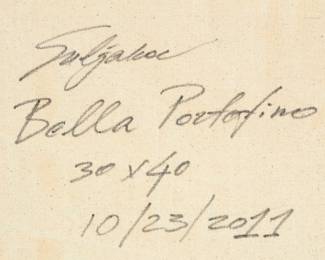 Suljakoc
Bella Portofino
30 x 40
10/23/2011